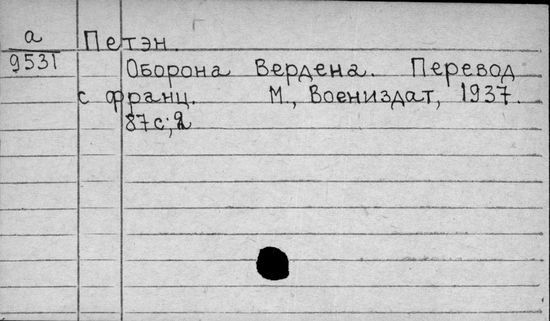 а Петэн.
9531
Оборона Вердена. Перевод
с франц. М., Воениздат, 1937.
87с; 2